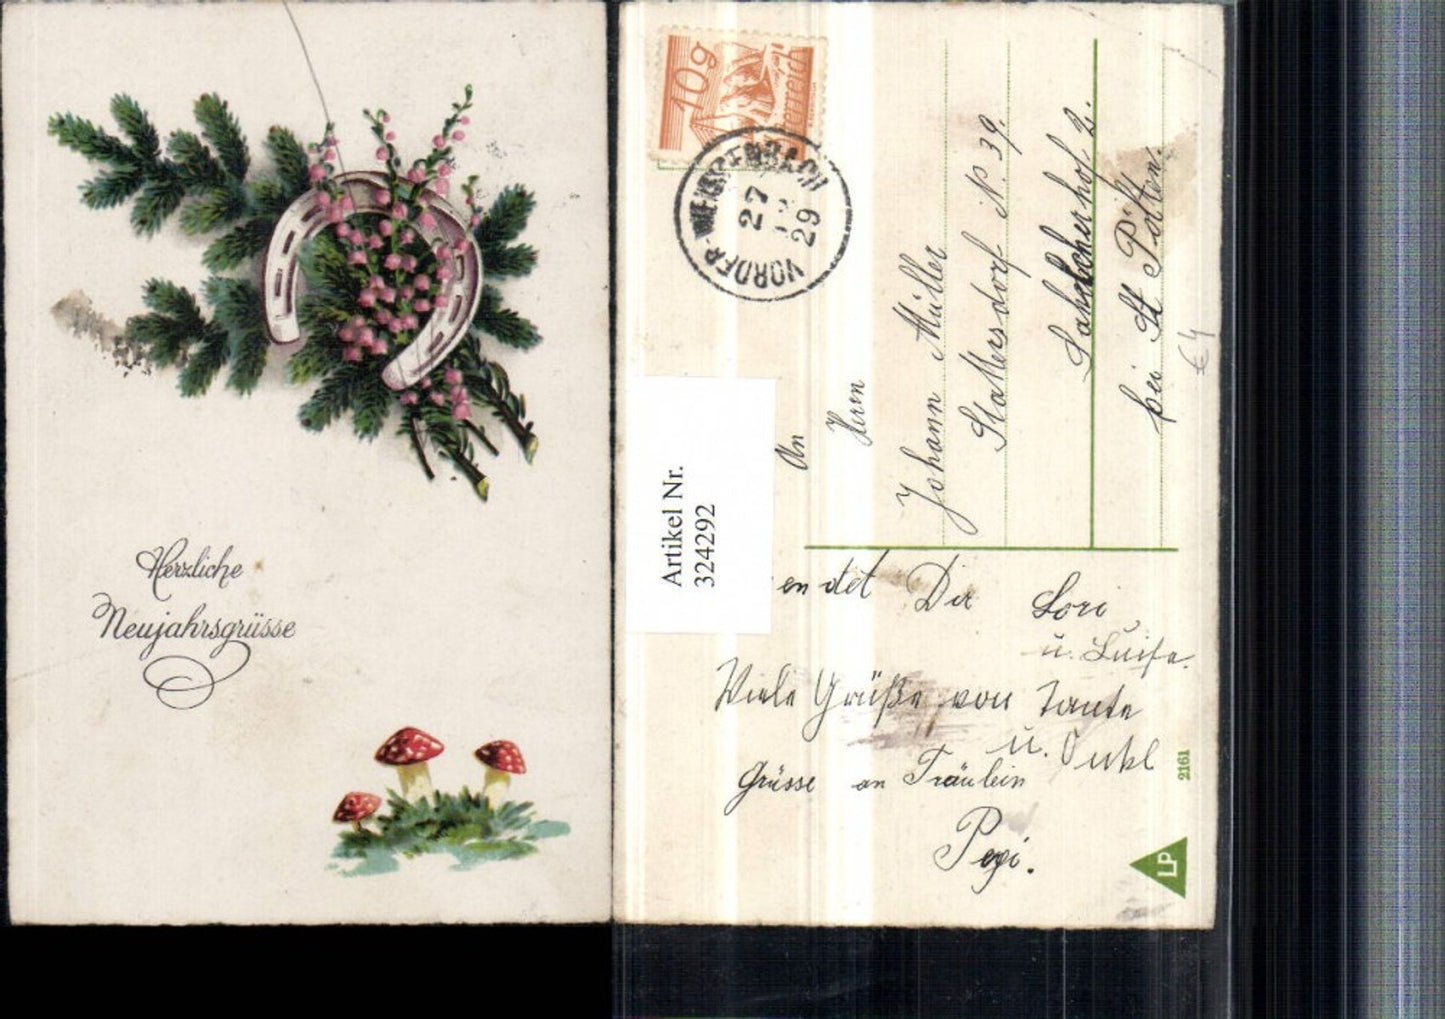 Herzliche
Neujahrsgrüsse
10g
Österreich
VORDER-WEISSENBACH
27
29
Artikel Nr.
324292
An
Herrn
Johann Müller
Stattersdorf N. 39.
bei St Pölten.
€ 4
endet Dir Lori
u. Luise.
Viele Grüße von Tante
u. Onkl
Grüsse an Fräulein
Pepi.
2161
LP